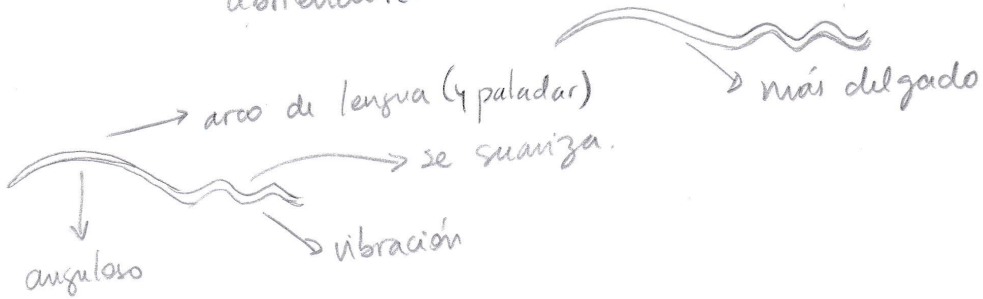 más delgado
arco de lengua (y paladar)
se suaviza.
vibración
anguloso